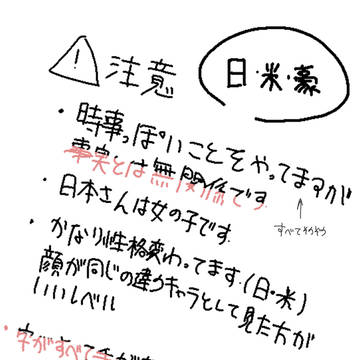 注意
日・米・豪
・時事っぽいことをやってますが
事実とは無関係です
すべてそうやう
・日本さんは女の子です
・かなり性格変わってます。(日・米)
顔が同じの違うキャラとして見た方が
いいレベル
・字がすべて手が